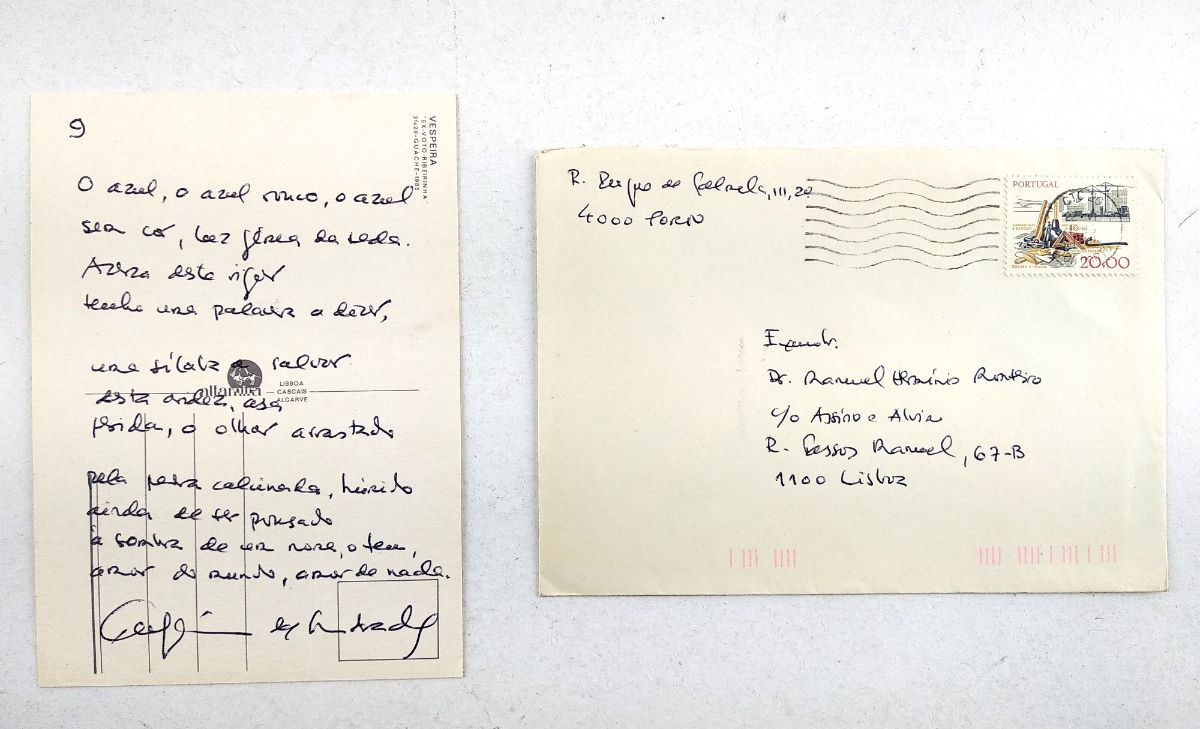 9
VESPEIRA
"EX-VOTO-RIBEIRINHA"
31x20-GUACHE-1983
O azul, o azul rouco, o azul
sem cor, luz gémea da sede.
Acerca deste rigor
tenho uma palavra a dizer,
uma sílaba a salvar
desta aridez, asa
ferida, o olhar arrastado
pela pedra calcinada, húmido
ainda de ter pousado
à sombra de um nome, o teu,
amor do mundo, amor de nada.
altamira
LISBOA
CASCAIS
ALGARVE
Eugénio de Andrade
R. Duque de Palmela, 111, 2º
4000 Porto
PORTUGAL
20.00
Dr. Manuel Hermínio Monteiro
c/o Assírio e Alvim
R. Passos Manuel, 67-B
1100 Lisboa